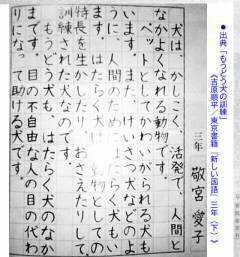 ●出典「もうどう犬の訓練」
（吉原順平／東京書籍『新しい国語』三年〈下〉）
三年 敬宮 愛子
犬は、かしこく、活発で、人間と
なかよくなれる動物です。
ペットとしてかわいがられる犬も
います。また、けいさつ犬などのよ
うに、人間のためにはたらく犬もい
ます。はたらく犬は、動物としての
特長を生かしたり、おさえたりして、
訓練された犬なのです。
もうどう犬も、はたらく犬のなか
まです。目の不自由な人の目の代わ
りになって助ける犬です。